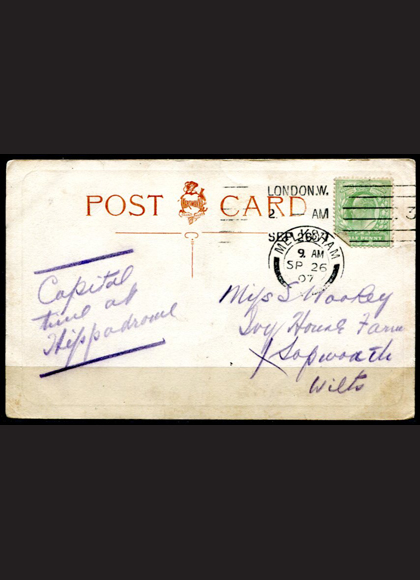 POST CARD
LONDON.W.
2. AM
SEP 26
3
MELKSHAM
9. AM
SP 26
07
Capital
time at
Hippodrome
Miss Hookey
House Farm
Sopworth
Wilts